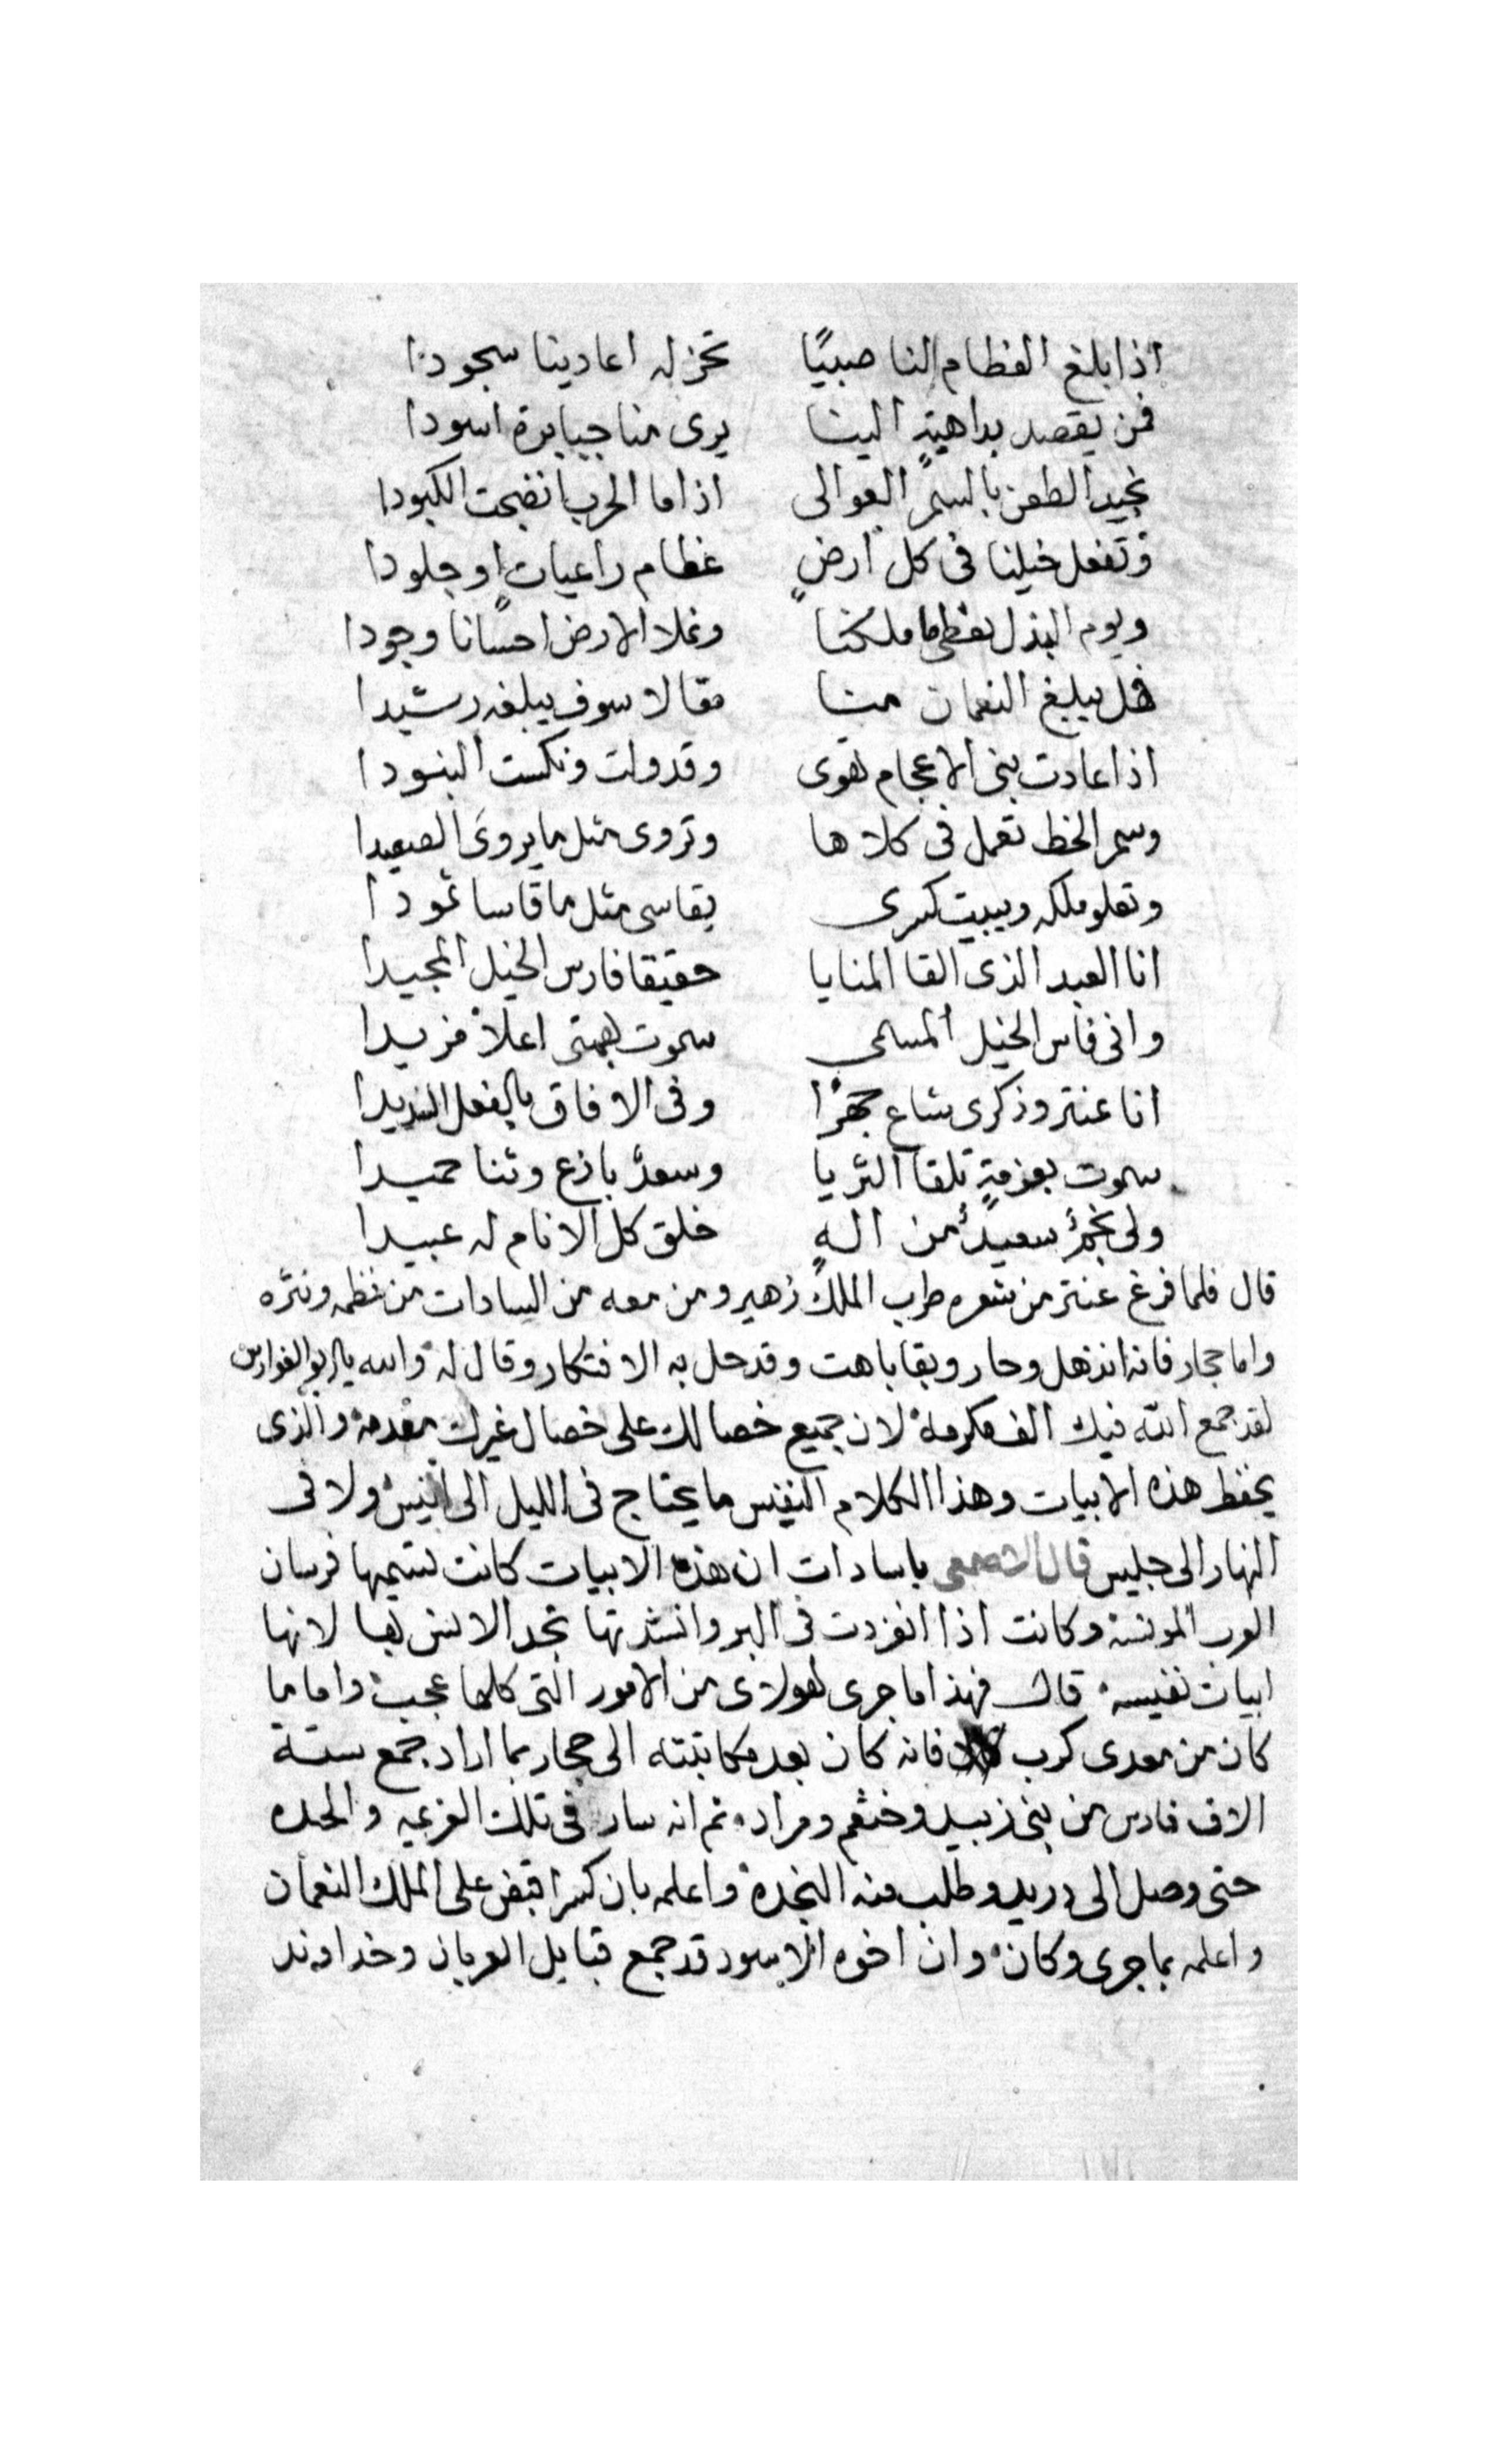 اذا بلغ الفطام لنا صبيًا تخر له اعادينا سجودا
فمن يقصد بداهيةٍ الينا يرى منا جبابرة اسودا
نجيد الطعن بالسمر العوالى اذا ما الحرب انضجت الكبودا
وتفعل خيلنا فى كل ارضٍ عظام راعيات او جلودا
ويوم البذل نعطى ما ملكنا ونملا الارض احسانا وجودا
فهل يبلغ النعمان منا مقالا سوف يبلغه رشيدا
اذا عادت بنى الاعجام تهوى وقد ولت ونكست البنودا
وسمر الخط تعمل فى كلاها وتروى مثل ما يروى الصعيدا
وتعلو ملكه ويبيت كسرى يقاسى مثل ما قاسا ثمودا
انا العبد الذى القا المنايا حقيقا فارس الخيل المجيدا
وانى فاس الخيل المسمى سموت بهمتى اعلا مزيدا
انا عنتر وذكرى شاع جهرًا وفى الافاق بالفعل السديدا
سموت بعزمةٍ تلقا الثريا وسعدٌ باذع وثنا حميدا
ولى نجمٌ سعيدٌ من الهٍ خلق كل الانام له عبيدا
قال فلما فرغ عنتر من شعره طرب الملك زهير ومن معه من السادات من نظمه ونثره
واما حجار فانه انذهل وحار وبقا باهت وقد حل به الافتكار وقال له والله يا ابو الفوارس
لقد جمع الله فيك الف مكرمة لان جميع خصالك على خصال غيرك مقدمة والذى
يحفظ هذه الابيات وهذا الكلام النفيس ما يحتاج فى الليل الى انيس ولا فى
النهار الى جليس قال الاصمعى ياسادات ان هذه الابيات كانت تسميها فرسان
العرب المونسة وكانت اذا انفردت فى البر وانشدتها تجد الانس بها لانها
ابيات نفيسه قال فهذا ما جرى لهولاى من الامور التى كلها عجب واما ما
كان من معدى كرب فانه كان بعد مكاتبته الى حجار بما اراد جمع ستة
الاف فارس من بنى زبيد وخثعم ومراد ثم انه سار فى تلك العزيمه والحده
حتى وصل الى دريد وطلب منه النجدة واعلمه بان كسرا قبض على الملك النعمان
واعلمه بما جرى وكان وان اخوه الاسود قد جمع قبايل العربان وخداوند